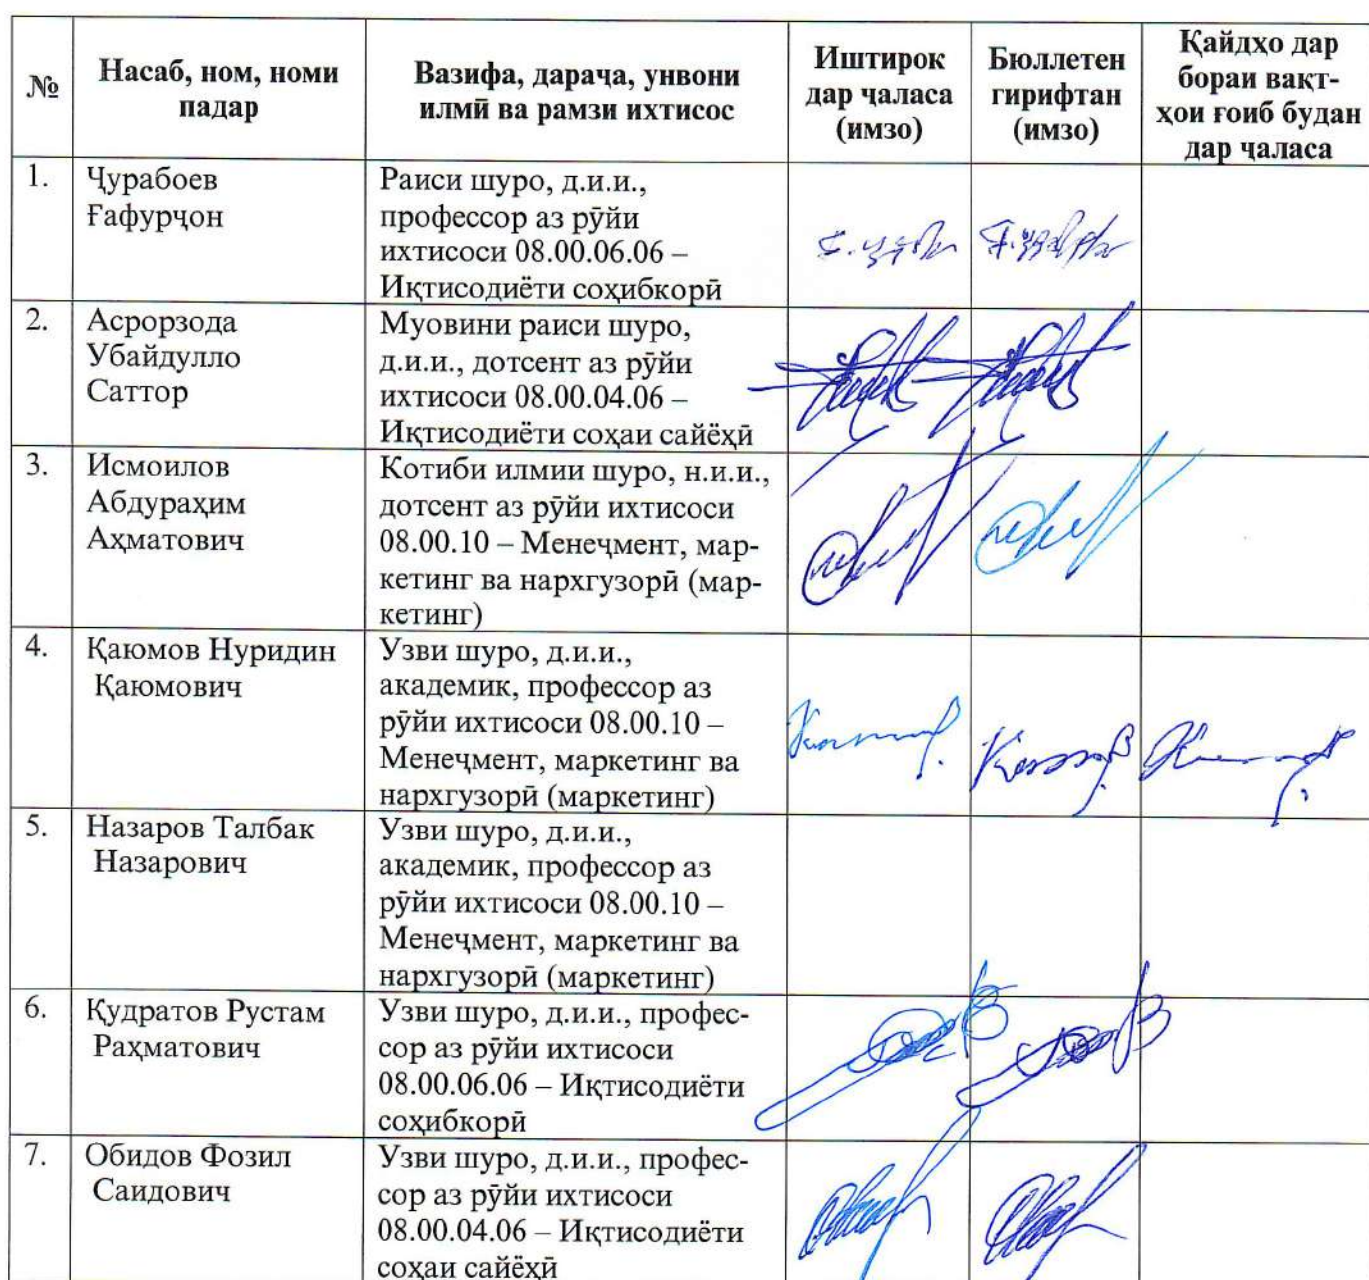 №
Насаб, ном, номи
падар
Вазифа, дараҷа, унвони
илмӣ ва рамзи ихтисос
Иштирок
дар ҷаласа
(имзо)
Бюллетен
гирифтан
(имзо)
Қайдҳо дар
бораи вақт-
ҳои ғоиб будан
дар ҷаласа
1.
Ҷурабоев
Ғафурҷон
Раиси шуро, д.и.и.,
профессор аз рӯйи
ихтисоси 08.00.06.06 –
Иқтисодиёти соҳибкорӣ
2.
Асрорзода
Убайдулло
Саттор
Муовини раиси шуро,
д.и.и., дотсент аз рӯйи
ихтисоси 08.00.04.06 –
Иқтисодиёти соҳаи сайёҳӣ
3.
Исмоилов
Абдураҳим
Аҳматович
Котиби илмии шуро, н.и.и.,
дотсент аз рӯйи ихтисоси
08.00.10 – Менеҷмент, мар-
кетинг ва нархгузорӣ (мар-
кетинг)
4.
Қаюмов Нуридин
Қаюмович
Узви шуро, д.и.и.,
академик, профессор аз
рӯйи ихтисоси 08.00.10 –
Менеҷмент, маркетинг ва
нархгузорӣ (маркетинг)
5.
Назаров Талбак
Назарович
Узви шуро, д.и.и.,
академик, профессор аз
рӯйи ихтисоси 08.00.10 –
Менеҷмент, маркетинг ва
нархгузорӣ (маркетинг)
6.
Қудратов Рустам
Раҳматович
Узви шуро, д.и.и., профес-
сор аз рӯйи ихтисоси
08.00.06.06 – Иқтисодиёти
соҳибкорӣ
7.
Обидов Фозил
Саидович
Узви шуро, д.и.и., профес-
сор аз рӯйи ихтисоси
08.00.04.06 – Иқтисодиёти
соҳаи сайёҳӣ